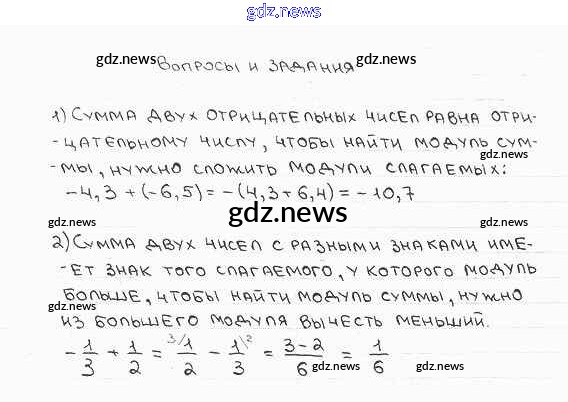 gdz.news
gdz.news gdz.news
ВОПРОСЫ И ЗАДАНИЯ
1) СУММА ДВУХ ОТРИЦАТЕЛЬНЫХ ЧИСЕЛ РАВНА ОТРИ-
-ЦАТЕЛЬНОМУ ЧИСЛУ, ЧТОБЫ НАЙТИ МОДУЛЬ СУМ-
gdz.news
-МЫ, НУЖНО СЛОЖИТЬ МОДУЛИ СЛАГАЕМЫХ:
-4,3 + (-6,5) = -(4,3+6,4) = -10,7
gdz.news gdz.news gdz.news
2) СУММА ДВУХ ЧИСЕЛ С РАЗНЫМИ ЗНАКАМИ ИМЕ-
-ЕТ ЗНАК ТОГО СЛАГАЕМОГО, У КОТОРОГО МОДУЛЬ
БОЛЬШЕ, ЧТОБЫ НАЙТИ МОДУЛЬ СУММЫ, НУЖНО
gdz.news
ИЗ БОЛЬШЕГО МОДУЛЯ ВЫЧЕСТЬ МЕНЬШИЙ.
-1/3 + 1/2 = 3/1/2 - 1\2/3 = 3-2/6 = 1/6
gdz.news gdz.news